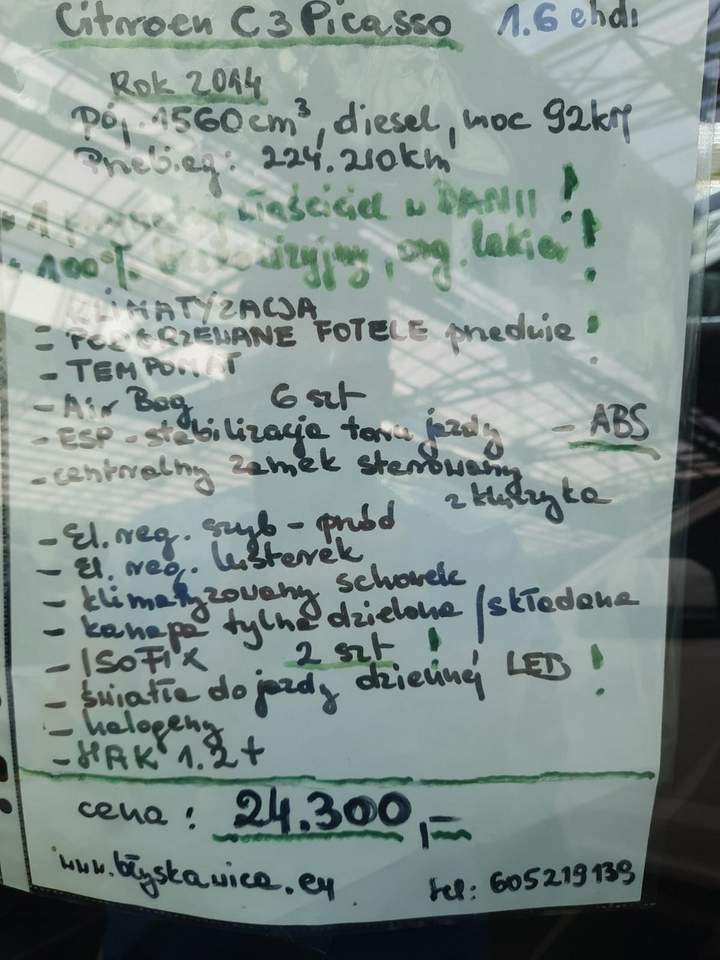 Citroen C3 Picasso 1.6 ehdi
Rok 2014
Poj. 1560 cm³, diesel, moc 92kM
Przebieg: 224.210km
+ 1 właściciel w DANII !
+ 100% bezkolizyjny, org. lakier !
KLIMATYZACJA
- PODGRZEWANE FOTELE przednie !
- TEMPOMAT
- Air Bag 6 szt
- ESP - stabilizacja toru jazdy - ABS
- centralny zamek sterowany
z kluczyka
- El. reg. szyb - przód
- El. reg. lusterek
- klimatyzowany schowek
- kanapa tylna dzielona / składana
- ISOFIX 2 szt !
- światła do jazdy dziennej LED !
- halogeny
- HAK 1.2t
cena: 24.300,-
www.błyskawica.eu tel: 605219139